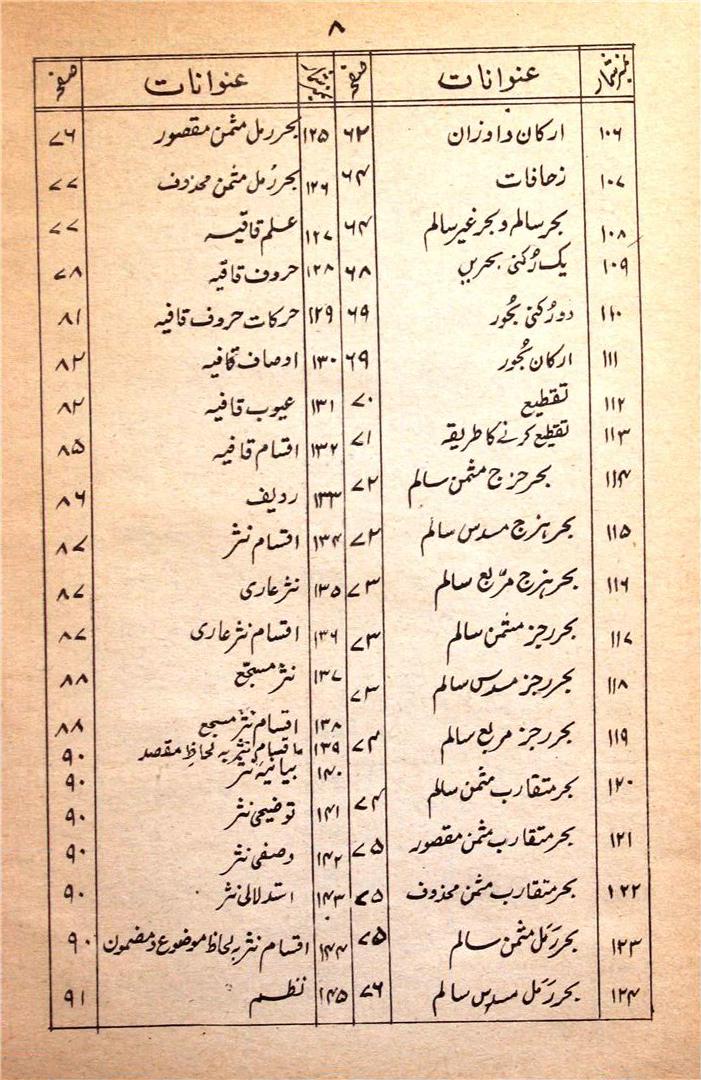 ۸
نمبر شمار عنوانات صفحہ
۱۰۶ ارکان و اوزان ۶۲
۱۰۷ زحافات ۶۴
۱۰۸ بحر سالم و بحر غیر سالم ۶۴
۱۰۹ یک رُکنی بحریں ۶۸
۱۱۰ دو رُکنی بحُور ۶۹
۱۱۱ ارکان بحُور ۶۹
۱۱۲ تقطیع ۷۰
۱۱۳ تقطیع کرنے کا طریقہ ۷۱
۱۱۴ بحر حزج مثمن سالم ۷۲
۱۱۵ بحر ہزج مسدس سالم ۷۲
۱۱۶ بحر ہزج مربّع سالم ۷۳
۱۱۷ بحر رجز مثمن سالم ۷۳
۱۱۸ بحر رجز مسدس سالم ۷۳
۱۱۹ بحر رجز مربع سالم ۷۴
۱۲۰ بحر متقارب مثمن سالم ۷۴
۱۲۱ بحر متقارب مثمن مقصور ۷۵
۱۲۲ بحر متقارب مثمن محذوف ۷۵
۱۲۳ بحر رَمَل مثمن سالم ۷۵
۱۲۴ بحر رَمَل مسدس سالم ۷۶
نمبر شمار عنوانات صفحہ
۱۲۵ بحر رمل مثمن مقصور ۷۶
۱۲۶ بحر رمل مثمن محذوف ۷۷
۱۲۷ علم قافیہ ۷۷
۱۲۸ حروف قافیہ ۷۸
۱۲۹ حرکات حروف قافیہ ۸۱
۱۳۰ اوصاف قافیہ ۸۲
۱۳۱ عیوب قافیہ ۸۲
۱۳۲ اقسام قافیہ ۸۵
۱۳۳ ردیف ۸۶
۱۳۴ اقسام نثر ۸۷
۱۳۵ نثر عاری ۸۷
۱۳۶ اقسام نثر عاری ۸۷
۱۳۷ نثر مسجّع ۸۸
۱۳۸ اقسام نثر مسجع ۸۸
۱۳۹ اقسام نثر بہ لحاظِ مقصد ۹۰
۱۴۰ بیانیہ نثر ۹۰
۱۴۱ توضیحی نثر ۹۰
۱۴۲ وصفی نثر ۹۰
۱۴۳ استدلالی نثر ۹۰
۱۴۴ اقسام نثر بہ لحاظ موضوع و مضمون ۹۰
۱۴۵ نظم ۹۱